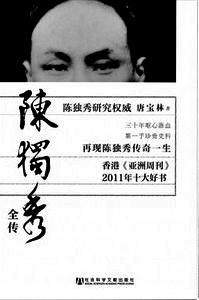 陈独秀研究权威 唐宝林 著
三十年呕心沥血
第一手珍贵史料
再现陈独秀传奇一生
香港《亚洲周刊》
2011年十大好书
陳獨秀
全传
社会科学文献出版社
SOCIAL SCIENCES ACADEMIC PRESS (CHINA)